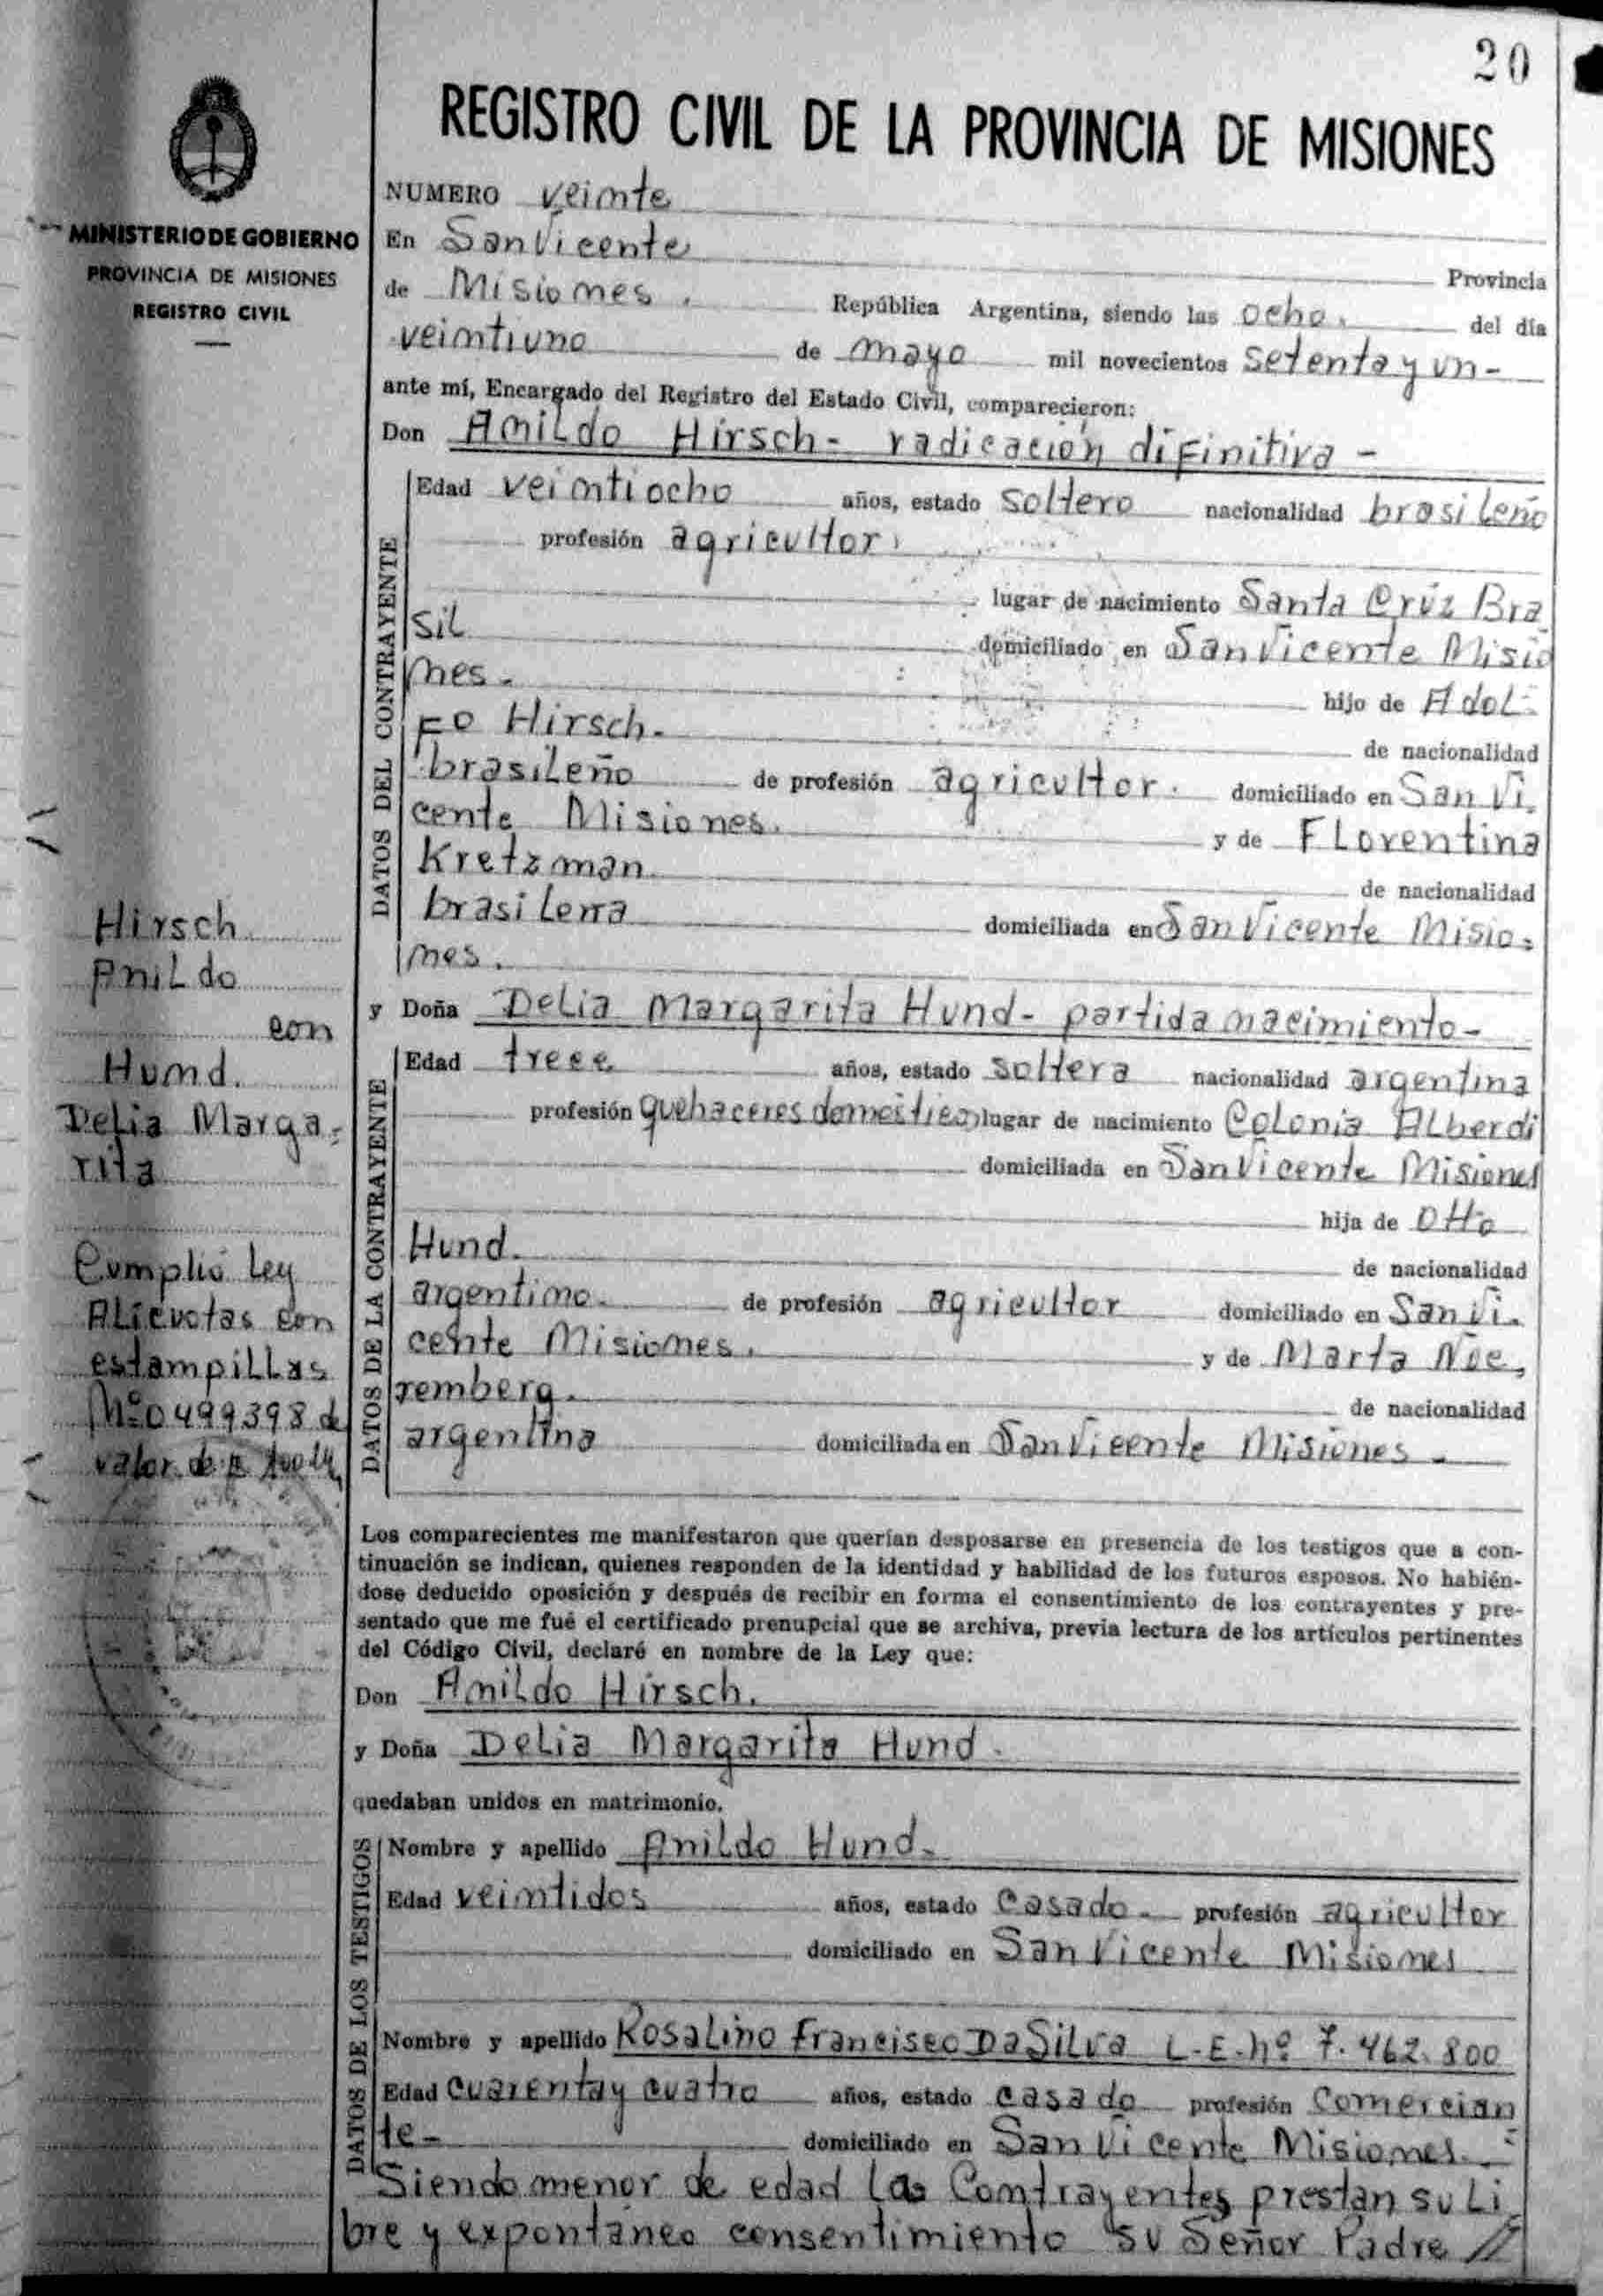 20
REGISTRO CIVIL DE LA PROVINCIA DE MISIONES
MINISTERIO DE GOBIERNO
PROVINCIA DE MISIONES
REGISTRO CIVIL
NUMERO veinte
En San Vicente Provincia
de Misiones. República Argentina, siendo las ocho. del día
veintiuno de mayo mil novecientos setenta y un-
ante mí, Encargado del Registro del Estado Civil, comparecieron:
Don Anildo Hirsch- radicación difinitiva -
DATOS DEL CONTRAYENTE
Edad veintiocho años, estado soltero nacionalidad brasileño
profesión agricultor.
lugar de nacimiento Santa Crúz Bra
sil domiciliado en San Vicente Misio
nes. hijo de Adol-
fo Hirsch. de nacionalidad
brasileño de profesión agricultor. domiciliado en San Vi.
cente Misiones. y de Florentina
Kretzman de nacionalidad
brasilera domiciliada en San Vicente Misio-
nes.
y Doña Delia Margarita Hund- partida nacimiento-
DATOS DE LA CONTRAYENTE
Edad trece años, estado soltera nacionalidad argentina
profesión quehaceres domesticos lugar de nacimiento Colonia Alberdi
domiciliada en San Vicente Misiones
hija de Otto
Hund. de nacionalidad
argentino. de profesión agricultor domiciliado en San Vi.
cente Misiones. y de Marta Noe,
remberg. de nacionalidad
argentina domiciliada en San Vicente Misiones.
Hirsch
Anildo
con
Hund.
Delia Marga-
rita
Cumplió Ley
Alicuotas con
estampillas
Nº 0499398 de
valor de
Los comparecientes me manifestaron que querían desposarse en presencia de los testigos que a con-
tinuación se indican, quienes responden de la identidad y habilidad de los futuros esposos. No habién-
dose deducido oposición y después de recibir en forma el consentimiento de los contrayentes y pre-
sentado que me fué el certificado prenupcial que se archiva, previa lectura de los artículos pertinentes
del Código Civil, declaré en nombre de la Ley que:
Don Anildo Hirsch.
y Doña Delia Margarita Hund.
quedaban unidos en matrimonio.
DATOS DE LOS TESTIGOS
Nombre y apellido Anildo Hund.
Edad veintidos años, estado casado. profesión agricultor
domiciliado en San Vicente Misiones
Nombre y apellido Rosalino Francisco Da Silva L.E. nº 7.462.800
Edad cuarenta y cuatro años, estado casado profesión comercian
te- domiciliado en San Vicente Misiones.-
Siendo menor de edad la Contrayentes prestan su Li
bre y expontáneo consentimiento su Señor Padre //